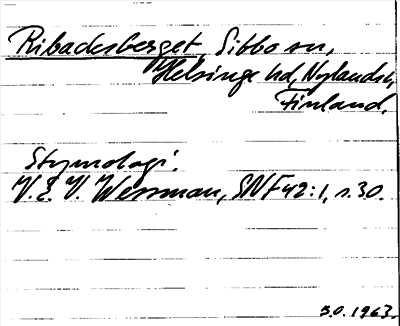 Ribacksberget, Sibbo sn,
Helsinge hd, Nylands l,
Finland.
Etymologi.
V. E. V. Wessman, SNF 42:1, s. 30.
5.0.1963.